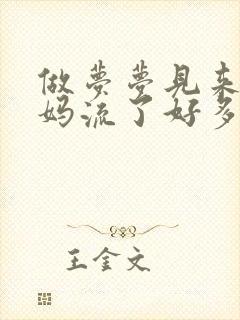 做梦梦见来
妈流了好多
王金文